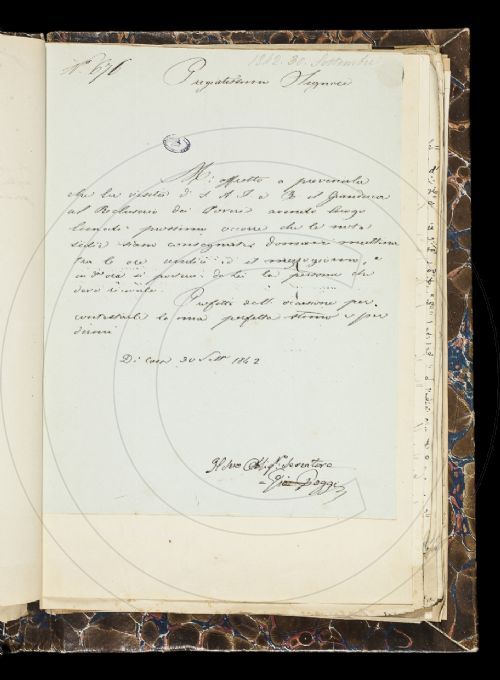 N.º 676
1842. 30. Settembre
Pregiatissimo Signore
Mi affretto a prevenirla
che la visita di S A I e R il Granduca
al Reclusorio dei Poveri avendo luogo
lunedì prossimo occorre che le
siano consegnate domani mattina
tra le ore undici e il mezzogiorno, e
in d.ª ora si porterà da Lei la persona che
deve
Profitto dell' occasione per
la mia perfetta stima e per
dirmi
Di Casa 30 Sett 1842
Il Suo Obblig.º Servitore
Gio Poggi